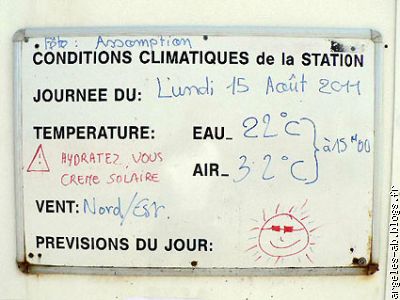 Fête : Assomption
CONDITIONS CLIMATIQUES de la STATION
JOURNEE DU: Lundi 15 Août 2011
TEMPERATURE: EAU_ 22°C
à 15H00
HYDRATEZ VOUS
CREME SOLAIRE
AIR_ 32°C
VENT: Nord/Est.
PREVISIONS DU JOUR:
argeles-ab.blogs.fr